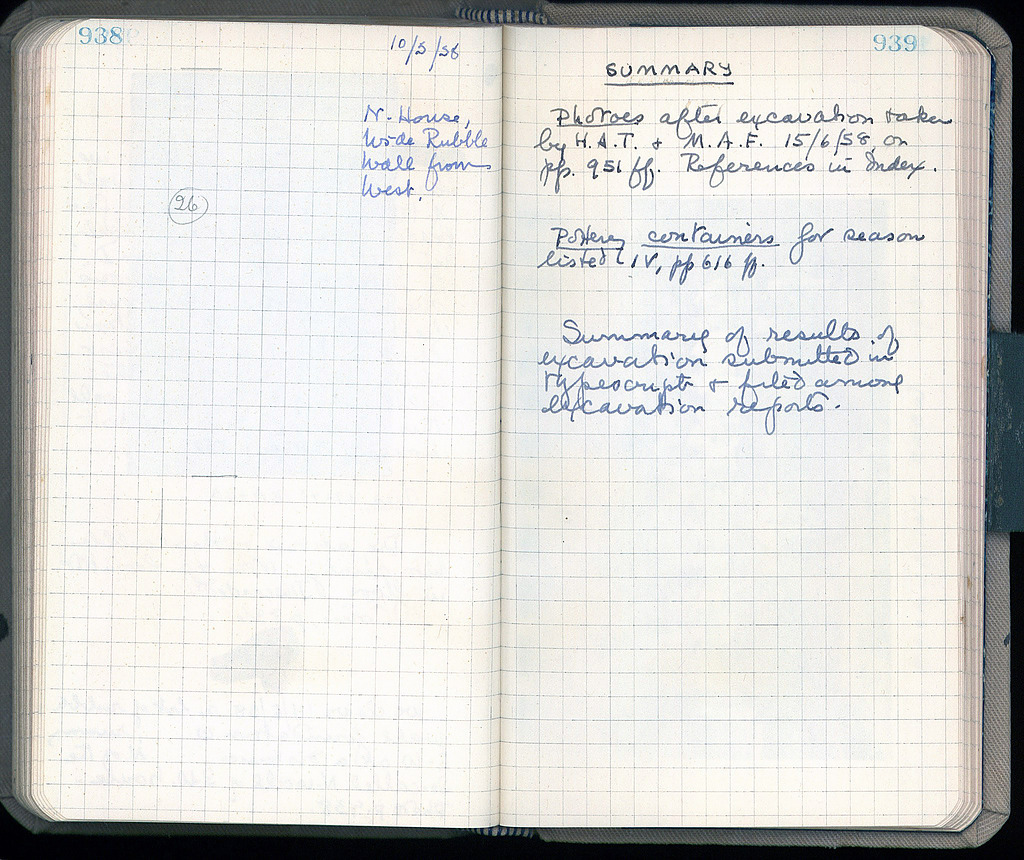 938
10/5/58
N. House,
Wide Rubble
Wall from
West.
26
939
SUMMARY
Photoes after excavation taken
by H.A.T. + M.A.F. 15/6/58, on
pp. 951 ff. References in Index.
Pottery containers for season
listed IV, pp 616 ff.
Summary of results of
excavation submitted in
typescript + filed among
excavation reports.